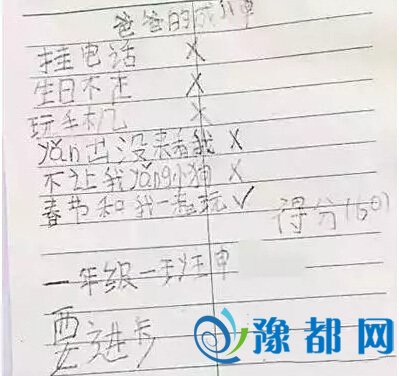 爸爸的成绩单
挂电话 X
生日不在 X
玩手机 X
yǎn出没来看我 X
不让我yǎng小狗 X
春节和我一起玩 ✓
得分(60)
一年级一班 单
要进步
豫都网